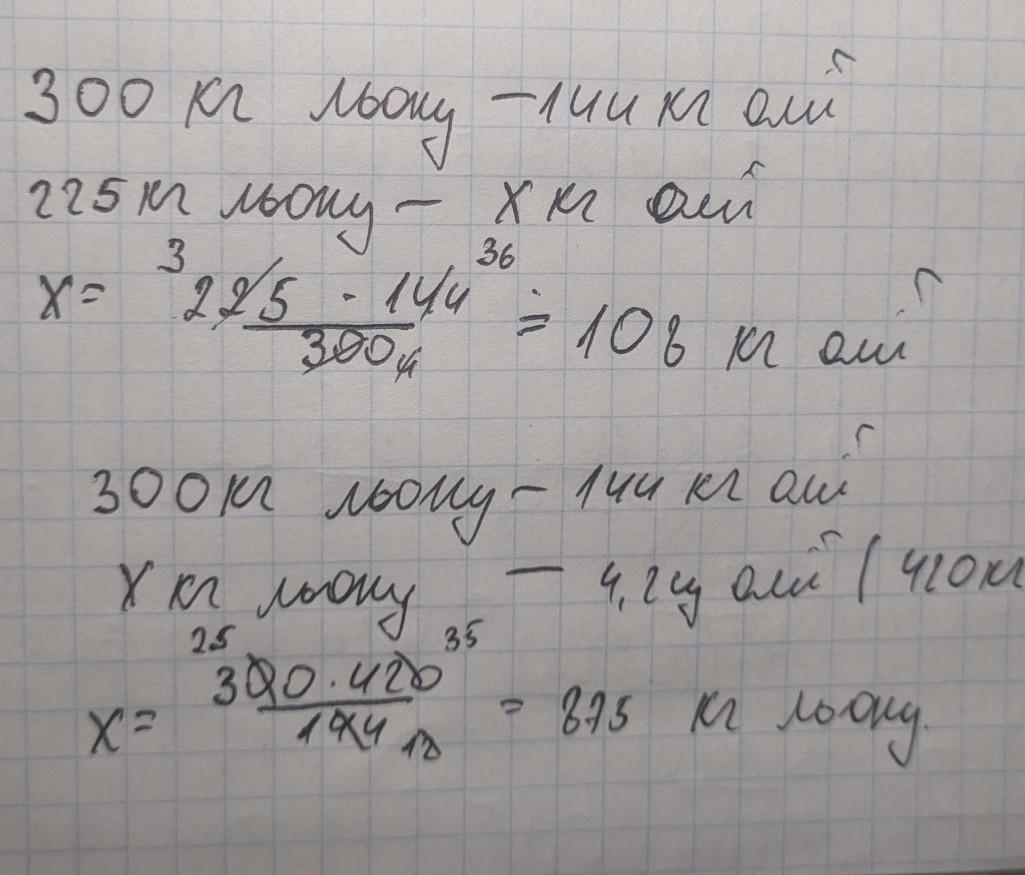 300 кг льону – 144 кг олії
225 кг льону – х кг олії
3 36
х = 225 · 144 / 300 4 = 108 кг олії
300 кг льону – 144 кг олії
х кг льону – 4,2 ц олії (420 кг
25 35
х = 300 · 420 / 144 12 = 875 кг льону.